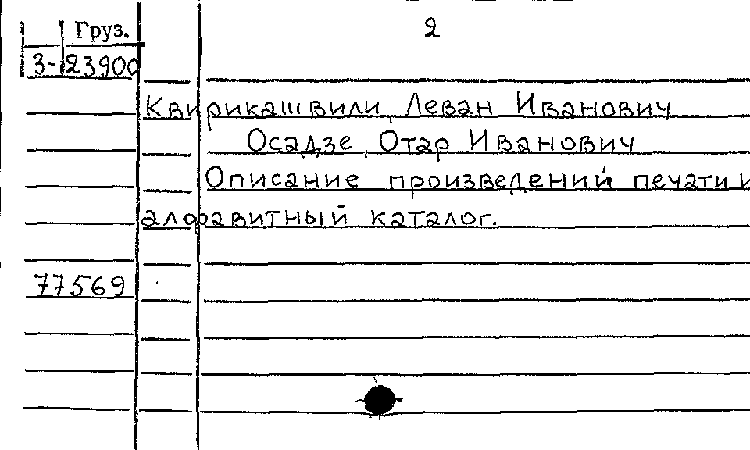 Груз.
2
3-23900
Квирикашвили, Леван Иванович
Осадзе, Отар Иванович
Описание произведений печати и
алфавитный каталог.
77569